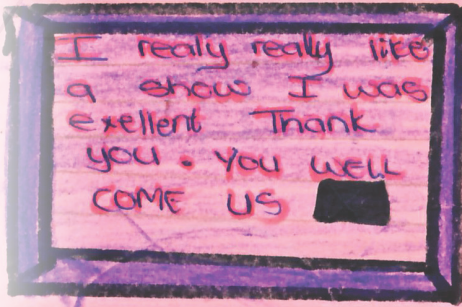 I realy really like
a show I was
exellent Thank
you. You well
come us